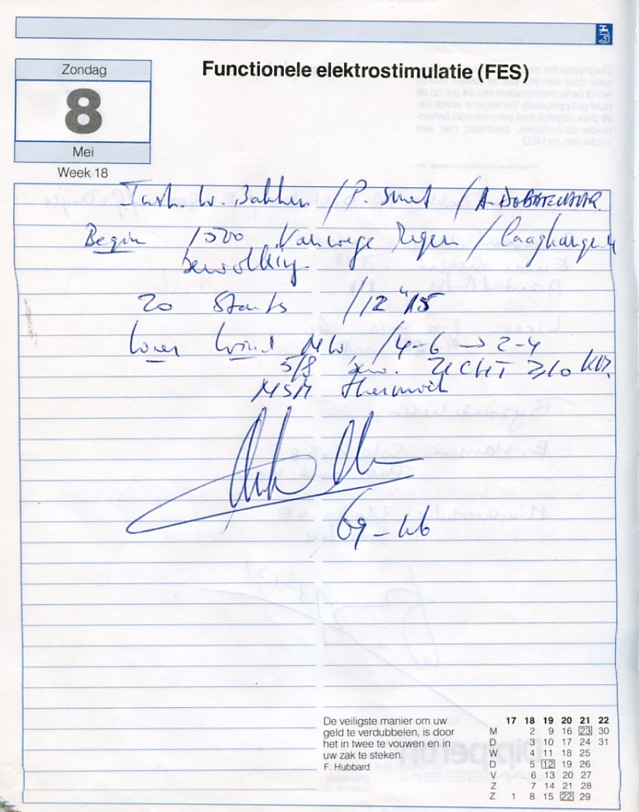 Zondag
8
Mei
Week 18
Functionele elektrostimulatie (FES)
Instr. W. Bakker / P. Smet / A. DOBBELAAR
Begin 1500 Vanwege Regen / Laaghangend
bewolking
20 Starts / 12
Wind NW / 4-6 → 2-4
5/8 bew. ZICHT ≥10 KM.
Thermiek
69-46
De veiligste manier om uw
geld te verdubbelen, is door
het in twee te vouwen en in
uw zak te steken.
F. Hubbard
17 18 19 20 21 22
M 2 9 16 23 30
D 3 10 17 24 31
W 4 11 18 25
D 5 12 19 26
V 6 13 20 27
Z 7 14 21 28
Z 1 8 15 22 29